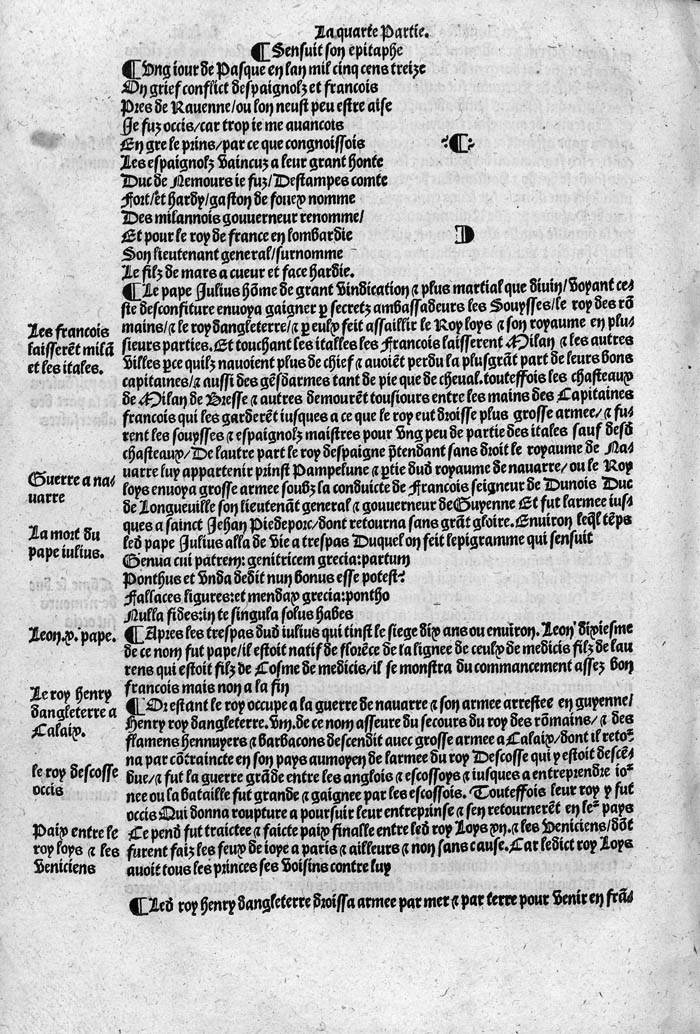 La quarte Partie.
¶ Sensuit son epitaphe
¶ Ung iour de Pasque en lan mil cinq cens treize
On grief conflict despaignolz et francois
Pres de Rauenne/ou lon neust peu estre aise
Je fuz occis/car trop ie me auancois
En gre le prins/par ce que congnoissois
Les espaignolz vaincuz a leur grant honte
Duc de Nemours ie fuz/Destampes comte
Fort/et hardy/gaston de fouex nomme
Des milannois gouuerneur renomme/
Et pour le roy de france en lombardie
Son lieutenant general/surnomme
Le filz de mars a cueur et face hardie.
¶ Le pape Julius hõme de grant vindication ⁊ plus martial que diuin/voyant ce-
ste desconfiture enuoya gaigner p secretz ambassadeurs les Souysses/le roy des rõ
mains/⁊ le roy dangleterre/⁊ p eulx feit assaillir le Roy loys ⁊ son royaume en plu-
sieurs parties. Et touchant les italles les Francois laisserent Milan ⁊ les autres
villes pce quilz nauoient plus de chief ⁊ auoiẽt perdu la plusgrãt part de leurs bons
capitaines/⁊ aussi des gẽsdarmes tant de pie que de cheual. touteffois les chasteaux
de Milan de Bresse ⁊ autres demourẽt tousiours entre les mains des Capitaines
francois qui les garderẽt iusques a ce que le roy eut droisse plus grosse armee/⁊ fu-
rent les souysses ⁊ espaignolz maistres pour vng peu de partie des itales sauf desd
chasteaux/De lautre part le roy despaigne p̃tendant sans droit le royaume de Na-
uarre luy appartenir prinst Pampelune ⁊ ptie dud royaume de nauarre/ou le Roy
loys enuoya grosse armee soubz la conduicte de Francois seigneur de Dunois Duc
de Longueuille son lieutenãt general ⁊ gouuerneur de Guyenne Et fut larmee ius-
ques a sainct Jehan Piedeporc/dont retourna sans grãt gloire. Enuiron leq̃l tẽps
led pape Julius alla de vie a trespas Duquel on feit lepigramme qui sensuit
Genua cui patrem: genitricem grecia: partum
Ponthus et vnda dedit nun bonus esse potest?
Fallaces ligures: et mendax grecia: pontho
Nulla fides: in te singula solus habes
¶ Apres les trespas dud iulius qui tinst le siege dix ans ou enuiron. Leon dixiesme
de ce nom fut pape/il estoit natif de florẽce de la lignee de ceulx de medicis filz de lau
rens qui estoit filz de Cosme de medicis/il se monstra du commancement assez bon
francois mais non a la fin
¶ Or estant le roy occupe a la guerre de nauarre ⁊ son armee arrestee en guyenne/
Henry roy dangleterre. viij. de ce nom asseure du secours du roy des rõmains/⁊ des
flamens hennuyers ⁊ barbacons descendit auec grosse armee a Calaix/dont il retor̃
na par cõtraincte en son pays aumoyen de larmee du roy Descosse qui y estoit descẽ-
due/⁊ fut la guerre grãde entre les anglois ⁊ escossoys ⁊ iusques a entreprendre ior̃
nee ou la bataille fut grande ⁊ gaignee par les escossois. Touteffois leur roy y fut
occis Qui donna roupture a poursuir leur entreprinse ⁊ sen retournerẽt en ler̃ pays
Ce pend fut traictee ⁊ faicte paix finalle entre led roy Loys xij. ⁊ les Veniciens/dõt
furent faiz les feux de ioye a paris ⁊ ailleurs ⁊ non sans cause. Car ledict roy Loys
auoit tous les princes ses voisins contre luy
¶ Led roy henry dangleterre droissa armee par mer ⁊ par terre pour venir en frã-
C
D
Les francois
laisserẽt milã
et les itales.
Guerre a na-
uarre
La mort du
pape iulius.
Leon. x. pape.
Le roy henry
dangleterre a
Calaix.
le roy descosse
occis
Paix entre le
roy loys ⁊ les
Veniciens